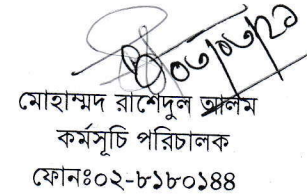 ০৩/০৩/২১
মোহাম্মদ রাশেদুল আলম
কর্মসূচি পরিচালক
ফোনঃ০২-৮১৮০১৪৪